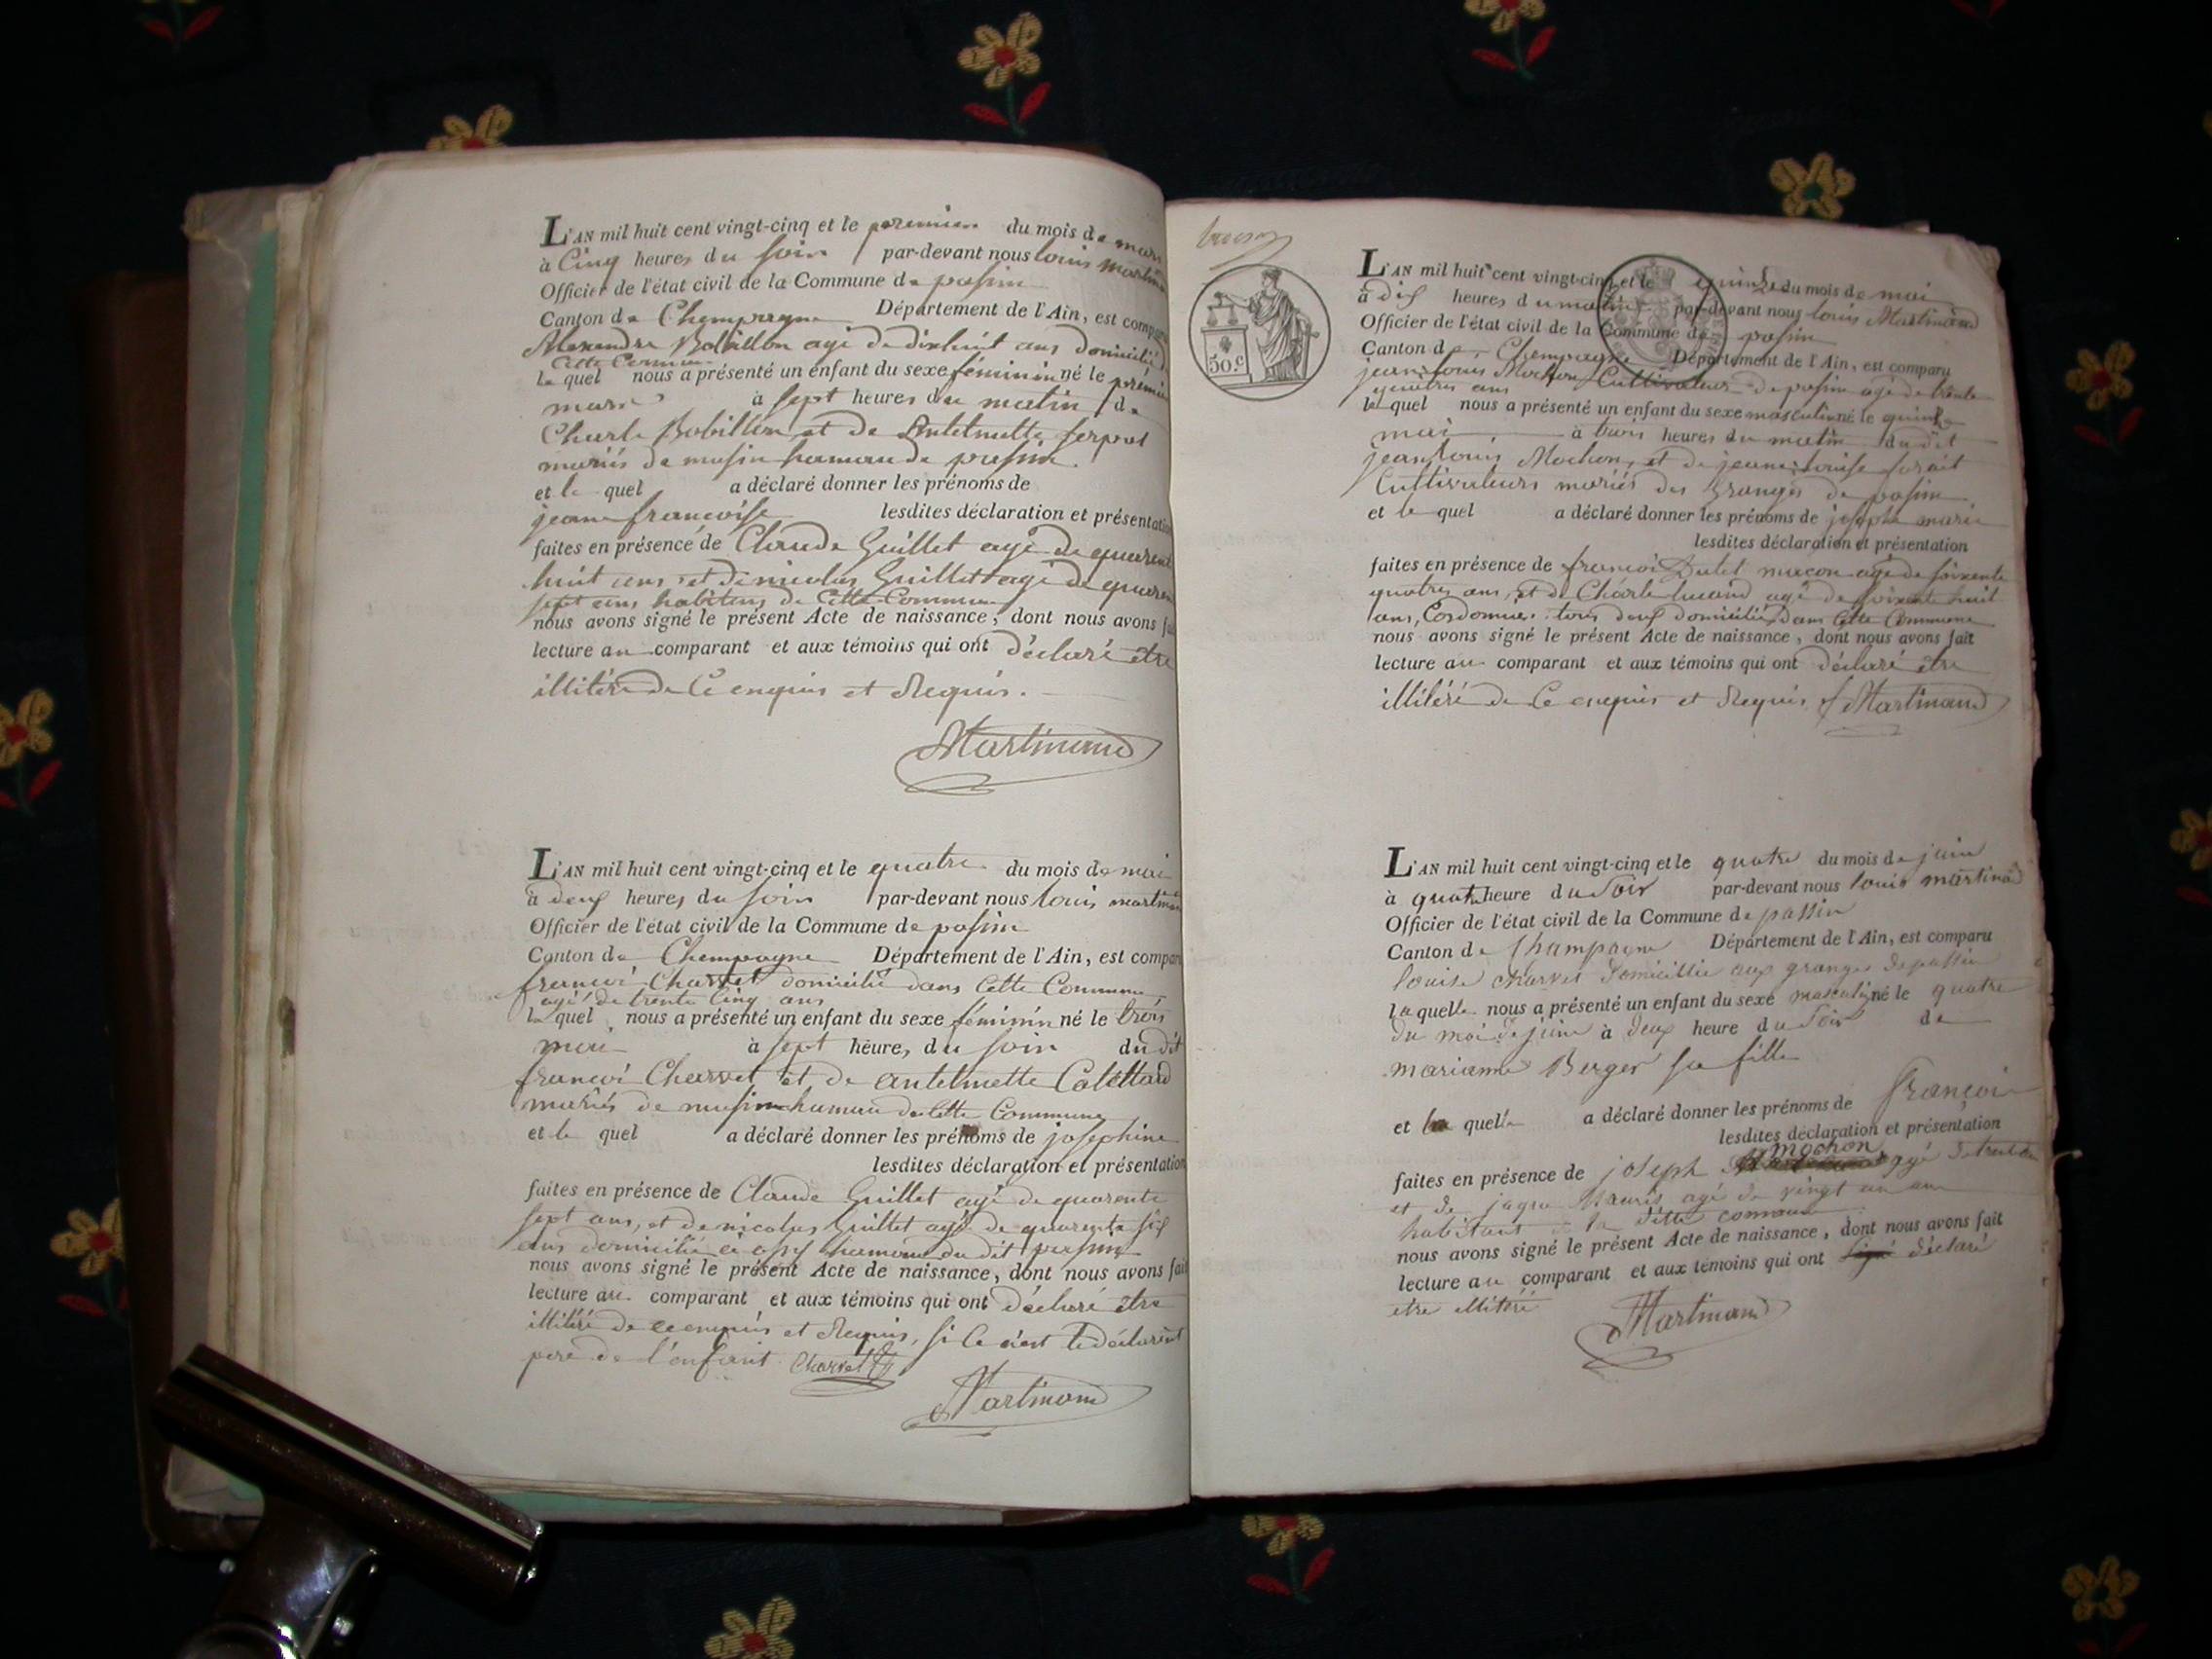 L'AN mil huit cent vingt-cinq et le premier du mois de mars
à Cinq heures du soir par-devant nous louis martinand
Officier de l'état civil de la Commune de pasin
Canton de Champagne Département de l'Ain, est comparu
Alexandre Bobillon agé de dixhuit ans domicilié
Cette Commune
le quel nous a présenté un enfant du sexe féminin né le premier
mars à sept heures du matin de
Charle Bobillon et de Antelmette serpol
mariés de musin hamau de pasin
et le quel a déclaré donner les prénoms de
jeane francoise lesdites déclaration et présentation
faites en présence de Claude Guillet agé de quarente
huit ans et de nicolas Guillet agé de quarente
sept ans habitans de Cette Commune
nous avons signé le présent Acte de naissance, dont nous avons fait
lecture au comparant et aux témoins qui ont déclaré être
illitéré de Ce enquis et Requis.
Martinand
L'AN mil huit cent vingt-cinq et le quatre du mois de mai
à deux heures du soir par-devant nous louis martinand
Officier de l'état civil de la Commune de pasin
Canton de Champagne Département de l'Ain, est comparu
francoi Charvet domicilié dans Cette Commune
agé de trente Cinq ans
le quel nous a présenté un enfant du sexe féminin né le trois
mai à sept heures du soir du dit
francoi Charvet et de antelmette Catettand
mariés de musin hamau de Cette Commune
et le quel a déclaré donner les prénoms de josephine
lesdites déclaration et présentation
faites en présence de Claude Guillet agé de quarente
sept ans, et de nicolas Guillet agé de quarente six
ans domicilié hamau du dit pasin
nous avons signé le présent Acte de naissance, dont nous avons fait
lecture au comparant et aux témoins qui ont déclaré être
illitéré de ce enquis et Requis, si Ce n'est le déclarent
pere de l'enfant. Charvet
Martinand
50.c
L'AN mil huit cent vingt-cinq et le quinze du mois de mai
à dix heures du matin par-devant nous louis Martinand
Officier de l'état civil de la Commune de pasin
Canton de Champagne Département de l'Ain, est comparu
jean louis Mochon Cultivateur de pasin agé de trente
quatres ans
le quel nous a présenté un enfant du sexe masculin né le quinze
mai à trois heures du matin du dit
jean louis Mochon, et de jeane louise forait
Cultivateurs mariés des Granges de pasin
et le quel a déclaré donner les prénoms de joseph marie
lesdites déclaration et présentation
faites en présence de francoi Dulet macon agé de soixente
quatres ans, et de Charle agé de soixente huit
ans, Cordonnier tous deux domicilié dans Cette Commune
nous avons signé le présent Acte de naissance, dont nous avons fait
lecture au comparant et aux témoins qui ont déclaré être
illitéré de Ce enquis et Requis Martinand
L'AN mil huit cent vingt-cinq et le quatre du mois de juin
à quatre heure du soir par-devant nous louis martinand
Officier de l'état civil de la Commune de passin
Canton de Champagne Département de l'Ain, est comparu
louise charvet domicillie aux granges de passin
laquelle nous a présenté un enfant du sexe masculin né le quatre
du moi de juin à deux heure du soir de
marianne Berger sa fille
et la quelle a déclaré donner les prénoms de françois
lesdites déclaration et présentation
mochon
faites en présence de joseph agé de trente
et de jaque Mauris agé de vingt un ans
habitant la ditte commune
nous avons signé le présent Acte de naissance, dont nous avons fait
lecture au comparant et aux témoins qui ont signé déclaré
etre illitéré
Martinand